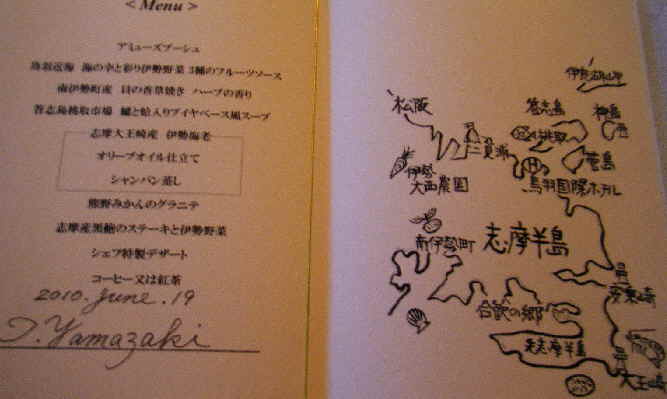 < Menu >
アミューズブーシュ
鳥羽近海 海の幸と彩り伊勢野菜 3種のフルーツソース
南伊勢町産 貝の香草焼き ハーブの香り
答志島桃取市場 鱸と蛤入りブイヤベース風スープ
志摩大王崎産 伊勢海老
オリーブオイル仕立て
シャンパン蒸し
熊野みかんのグラニテ
志摩産黒鮑のステーキと伊勢野菜
シェフ特製デザート
コーヒー又は紅茶
2010. June. 19
J. Yamazaki
伊良湖岬
松阪
答志島
神島
桃取
二見浦
菅島
伊勢
大西農園
鳥羽国際ホテル
南伊勢町
志摩半島
安乗崎
合歓の郷
先志摩半島
大王崎